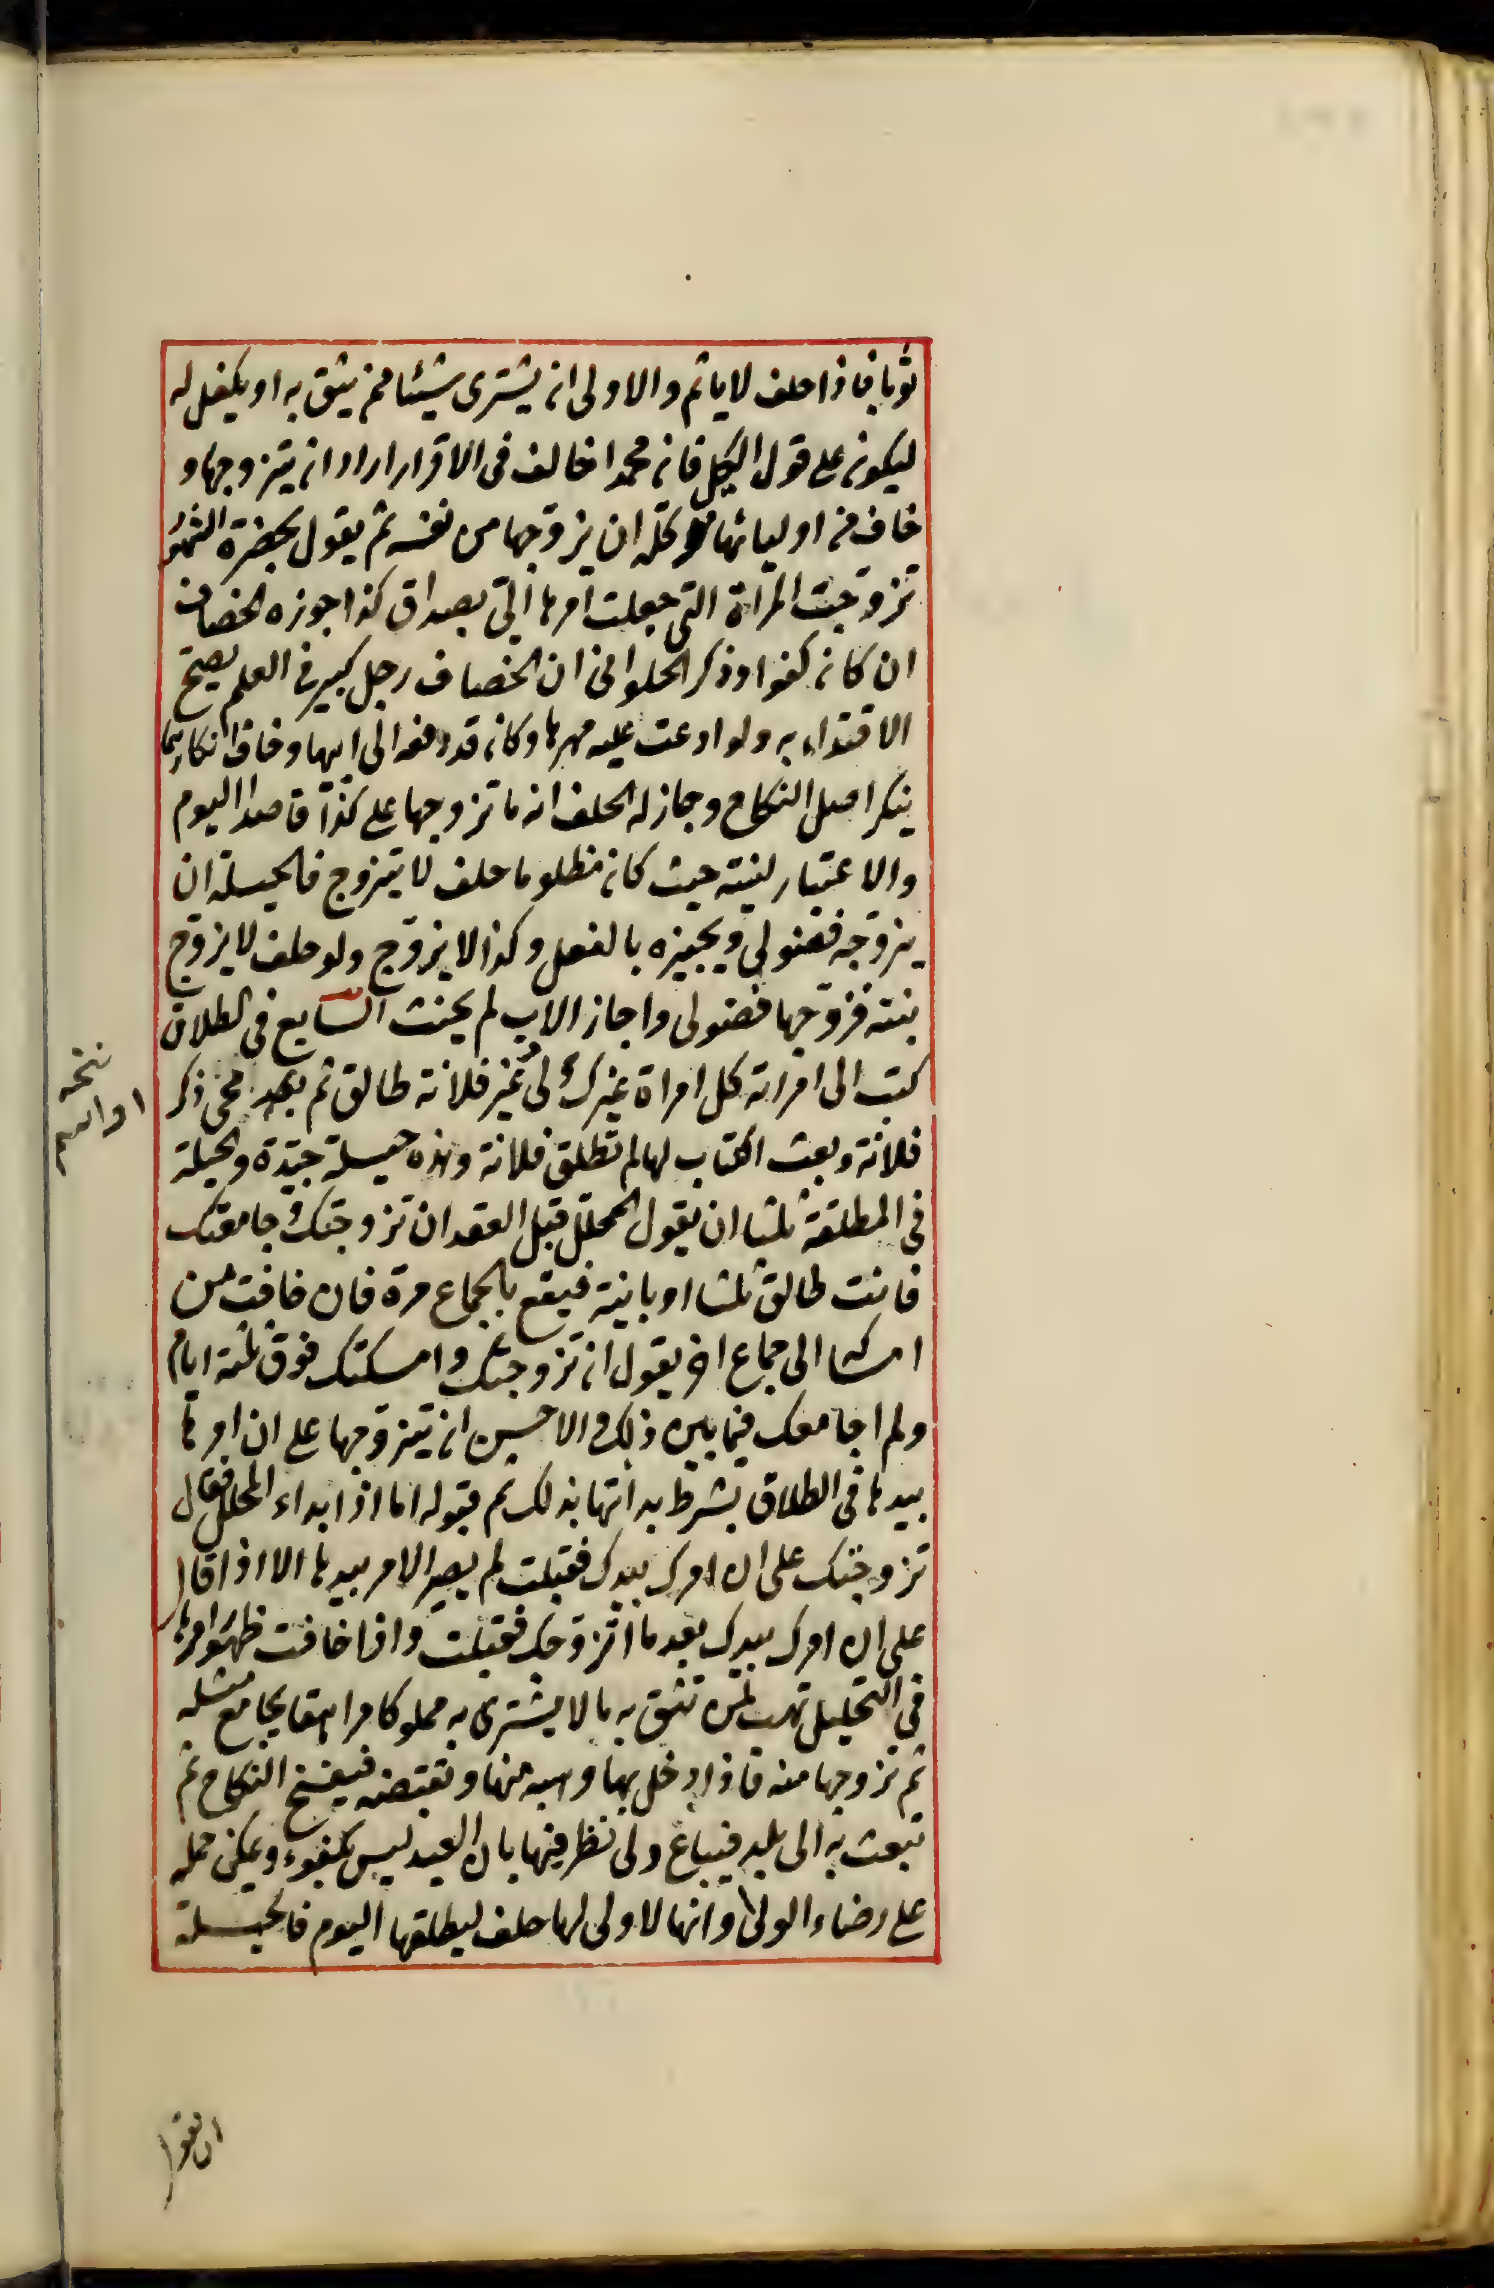 ثوبا فاذا حلف لا ياثم والاولى ان يشترى شيئا ممن يثق به او يكفل له
ليكون على قول الكل فان محمدا خالف فى الاقرار اراد ان يتزوجها و
خاف من اوليائها توكله ان يزوجها من نفسه ثم يقول بحضرة الشهود
تزوجت المرأة التى جعلت امرها الىّ بصداق كذا جوزه الخصاف
ان كان كفوا وذكر الحلوانى ان الخصاف رجل كبير فى العلم يصح
الاقتداء به ولو ادعت عليه مهرها وكان قد دفعه الى ابيها وخاف انكارهما
ينكر اصل النكاح وجاز له الحلف انه ما تزوجها على كذا قاصدا اليوم
والاعتبار لنيته حيث كان مظلوما حلف لا يتزوج فالحيلة ان
يزوجه فضولى ويجيزه بالفعل وكذا لا يزوج ولو حلف لا يزوج
بنته فزوجها فضولى واجاز الاب لم يحنث السابع فى الطلاق
كتب الى امراته كل امراة غيرك لى غير فلانة طالق ثم بعد محى ذكر
فلانة وبعث الكتاب لها لم تطلق فلانة وهذه حيلة جيدة والحيلة
فى المطلقة ثلثا ان يقول المحلل قبل العقد ان تزوجتك وجامعتك
فانت طالق ثلثا او باينة فيقع بالجماع مرة فان خافت من
امساكها الى جماع اخر يقول ان تزوجتك وامسكتك فوق ثلثة ايام
ولم اجامعك فيما بين ذلك والاحسن ان يتزوجها على ان امرها
بيدها فى الطلاق بشرط بدائتها بذلك ثم قبوله اما اذا بداء المحلل فقال
تزوجتك على ان امرك بيدك فقبلت لم يصير الامر بيدها الا اذا قال
على ان امرك بيدك بعد ما اتزوجك فقبلت واذا خافت ظهور امرها
فى التحليل تهب لمن تثق به مالا يشترى به مملوكا مراهقا يجامع مثله
ثم تزوجها منه فاذا دخل بها وهبه منها وتقبضه فيفسخ النكاح ثم
تبعث به الى بلد فيباع ولى نظر فيها بان العبد ليس بكفوء ويمكن حمله
على رضاء الولى وانها لا ولى لها حلف ليطلقها اليوم فالحيلة
نسخه
او اسم
ان يقول